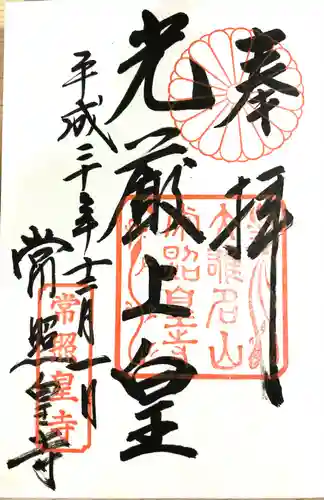 奉拝
光厳上皇
平成二十年十二月一日
常照皇寺
大雄名山
常照皇寺
常照皇寺